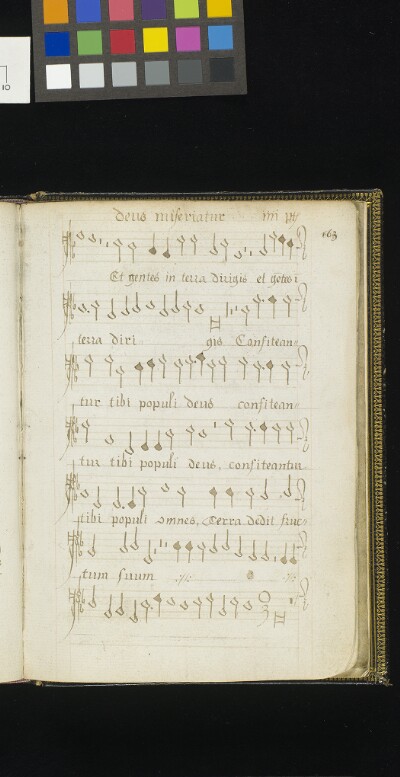 Deus miseriatur iiii pt
163
Et gentes in terra dirigis et getes i
terra diri gis Confitean=
tur tibi populi deus confitean=
tur tibi populi deus, confiteantur
tibi populi omnes, Terra dedit fruc=
tum suum